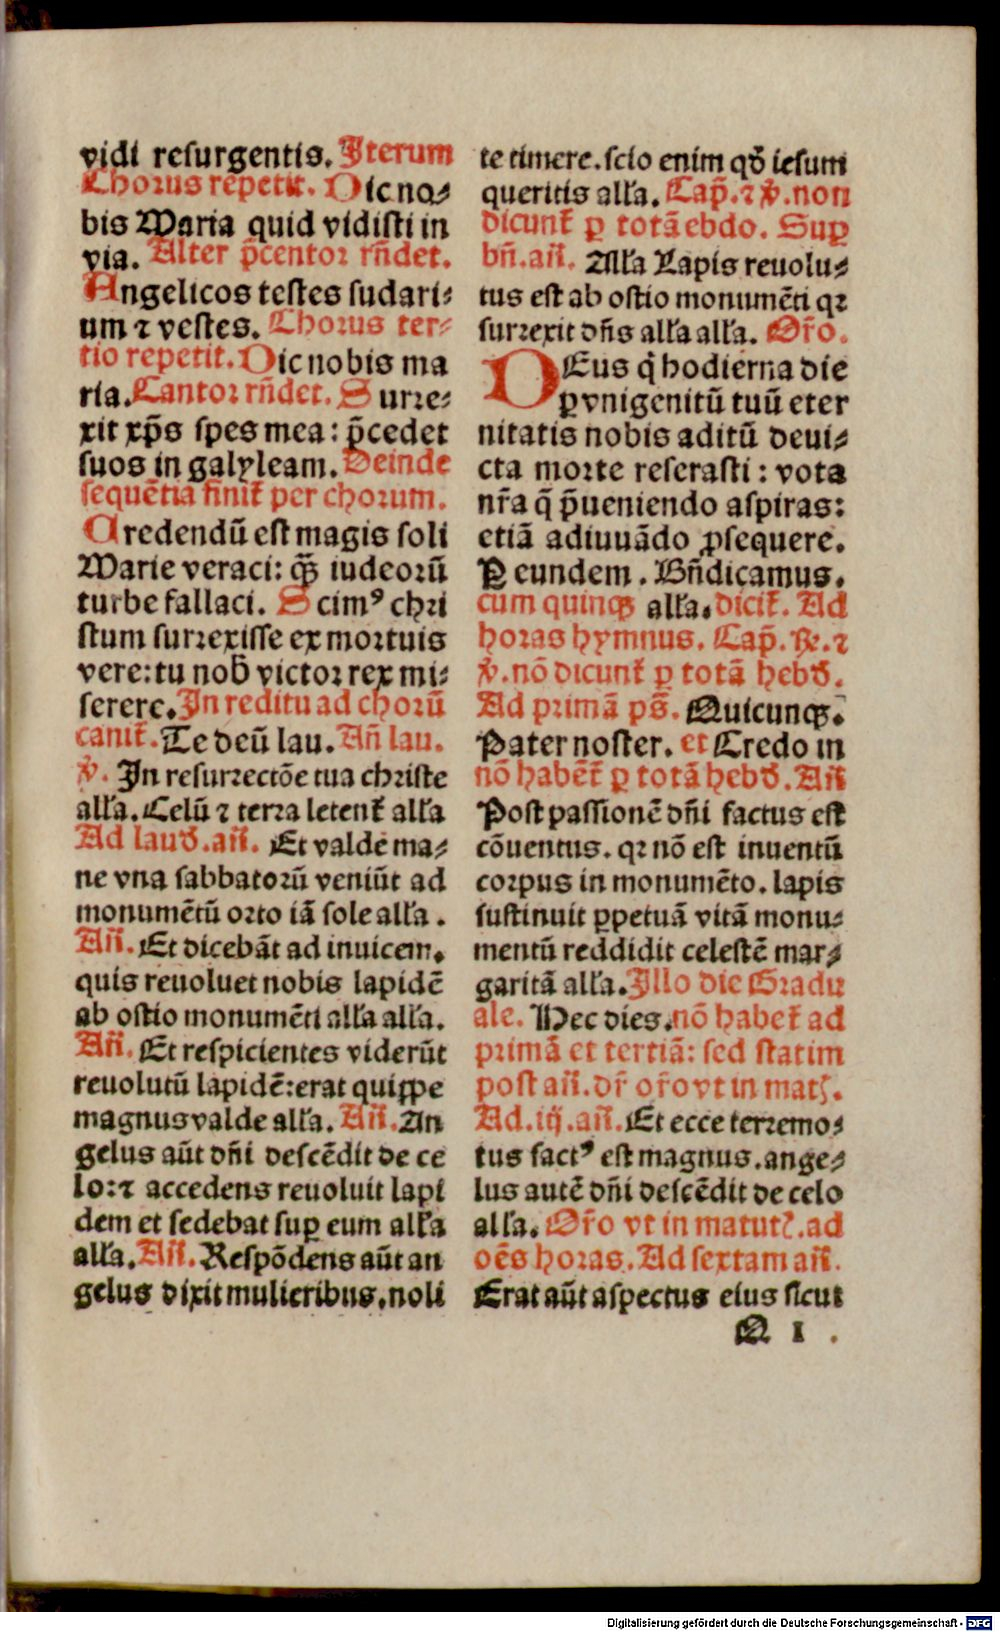 vidi resurgentis. Iterum
Chorus repetit. Dic no⸗
bis Maria quid vidisti in
via. Alter p̄centor rn̄det.
Angelicos testes sudari⸗
um ⁊ vestes. Chorus ter⸗
tio repetit. Dic nobis ma
ria. Cantor rn̄det. Surre⸗
xit xp̄s spes mea: p̄cedet
suos in galyleam. Deinde
sequētia finit᷑ per chorum.
Credendū est magis soli
Marie veraci: q̄ꝫ iudeorū
turbe fallaci. Scimꝰ chri
stum surrexisse ex mortuis
vere: tu nob̄ victor rex mi⸗
serere. In reditu ad chorū
canit᷑. Te deū lau. An̄ lau.
v̄. In resurrectōe tua christe
all̄a. Celū ⁊ terra letent᷑ all̄a
Ad laud̄. an̄. Et valde ma⸗
ne vna sabbatorū veniūt ad
monumētū orto iā sole all̄a.
An̄. Et dicebāt ad inuicem.
quis reuoluet nobis lapidē
ab ostio monumēti all̄a all̄a.
An̄. Et respicientes viderūt
reuolutū lapidē: erat quiꝑpe
magnus valde all̄a. An̄. An
gelus aūt dn̄i descēdit de ce
lo: ⁊ accedens reuoluit lapi
dem et sedebat suꝑ eum all̄a
all̄a. An̄. Respōdens aūt an
gelus dixit mulieribus. noli
te timere. scio enim qd̄ iesum
queritis all̄a. Cap̄. ⁊ v̄. non
dicunt᷑ ꝑ totā ebdo. Suꝑ
bn̄. an̄. All̄a Lapis reuolu⸗
tus est ab ostio monumēti qꝛ
surrexit dn̄s all̄a all̄a. Or̄o.
DEus q̄ hodierna die
ꝑ vnigenitū tuū eter
nitatis nobis aditū deui⸗
cta morte reserasti: vota
nr̄a q̄ p̄ueniendo aspiras:
etiā adiuuādo ꝓsequere.
Ꝑ eundem. Bn̄dicamus.
cum quinqꝫ all̄a. dicit᷑. Ad
horas hymnus. Cap̄. ℟. ⁊
v̄. nō dicunt᷑ ꝑ totā hebd̄.
Ad primā ps̄. Quicunqꝫ.
Pater noster. et Credo in
nō habēt᷑ ꝑ totā hebd̄. An̄
Post passionē dn̄i factus est
cōuentus. qꝛ nō est inuentū
corpus in monumēto. lapis
sustinuit ꝑpetuā vitā monu⸗
mentū reddidit celestē mar⸗
garitā all̄a. Illo die Gradu
ale. Hec dies. nō habet᷑ ad
primā et tertiā: sed statim
post an̄. dr̄ or̄o vt in matꝭ.
Ad. iij. an̄. Et ecce terremo⸗
tus factꝰ est magnus. ange⸗
lus autē dn̄i descēdit de celo
all̄a. Or̄o vt in matutꝭ. ad
oēs horas. Ad sextam an̄.
Erat aūt aspectus eius sicut
Q 1.
Digitalisierung gefördert durch die Deutsche Forschungsgemeinschaft - DFG